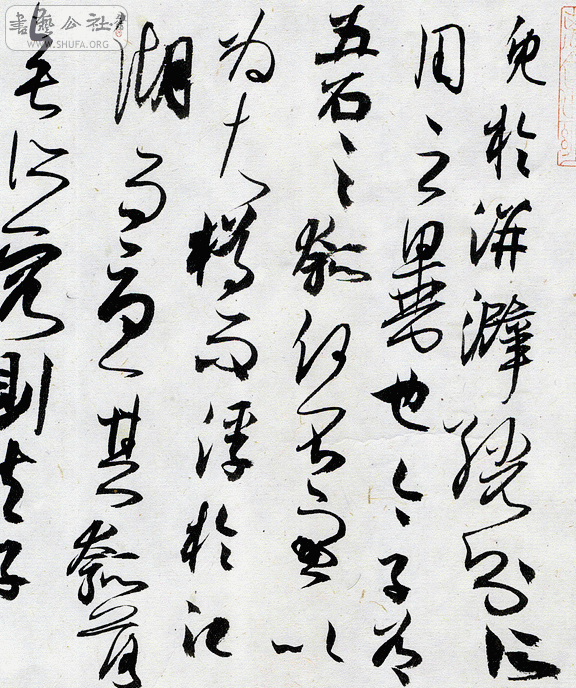 書藝公社
WWW.SHUFA.ORG
免於洴澼絖則所
用之異也今子有
五石之瓠何不慮以
為大樽而浮於江
湖而憂其瓠落
無所容則夫子